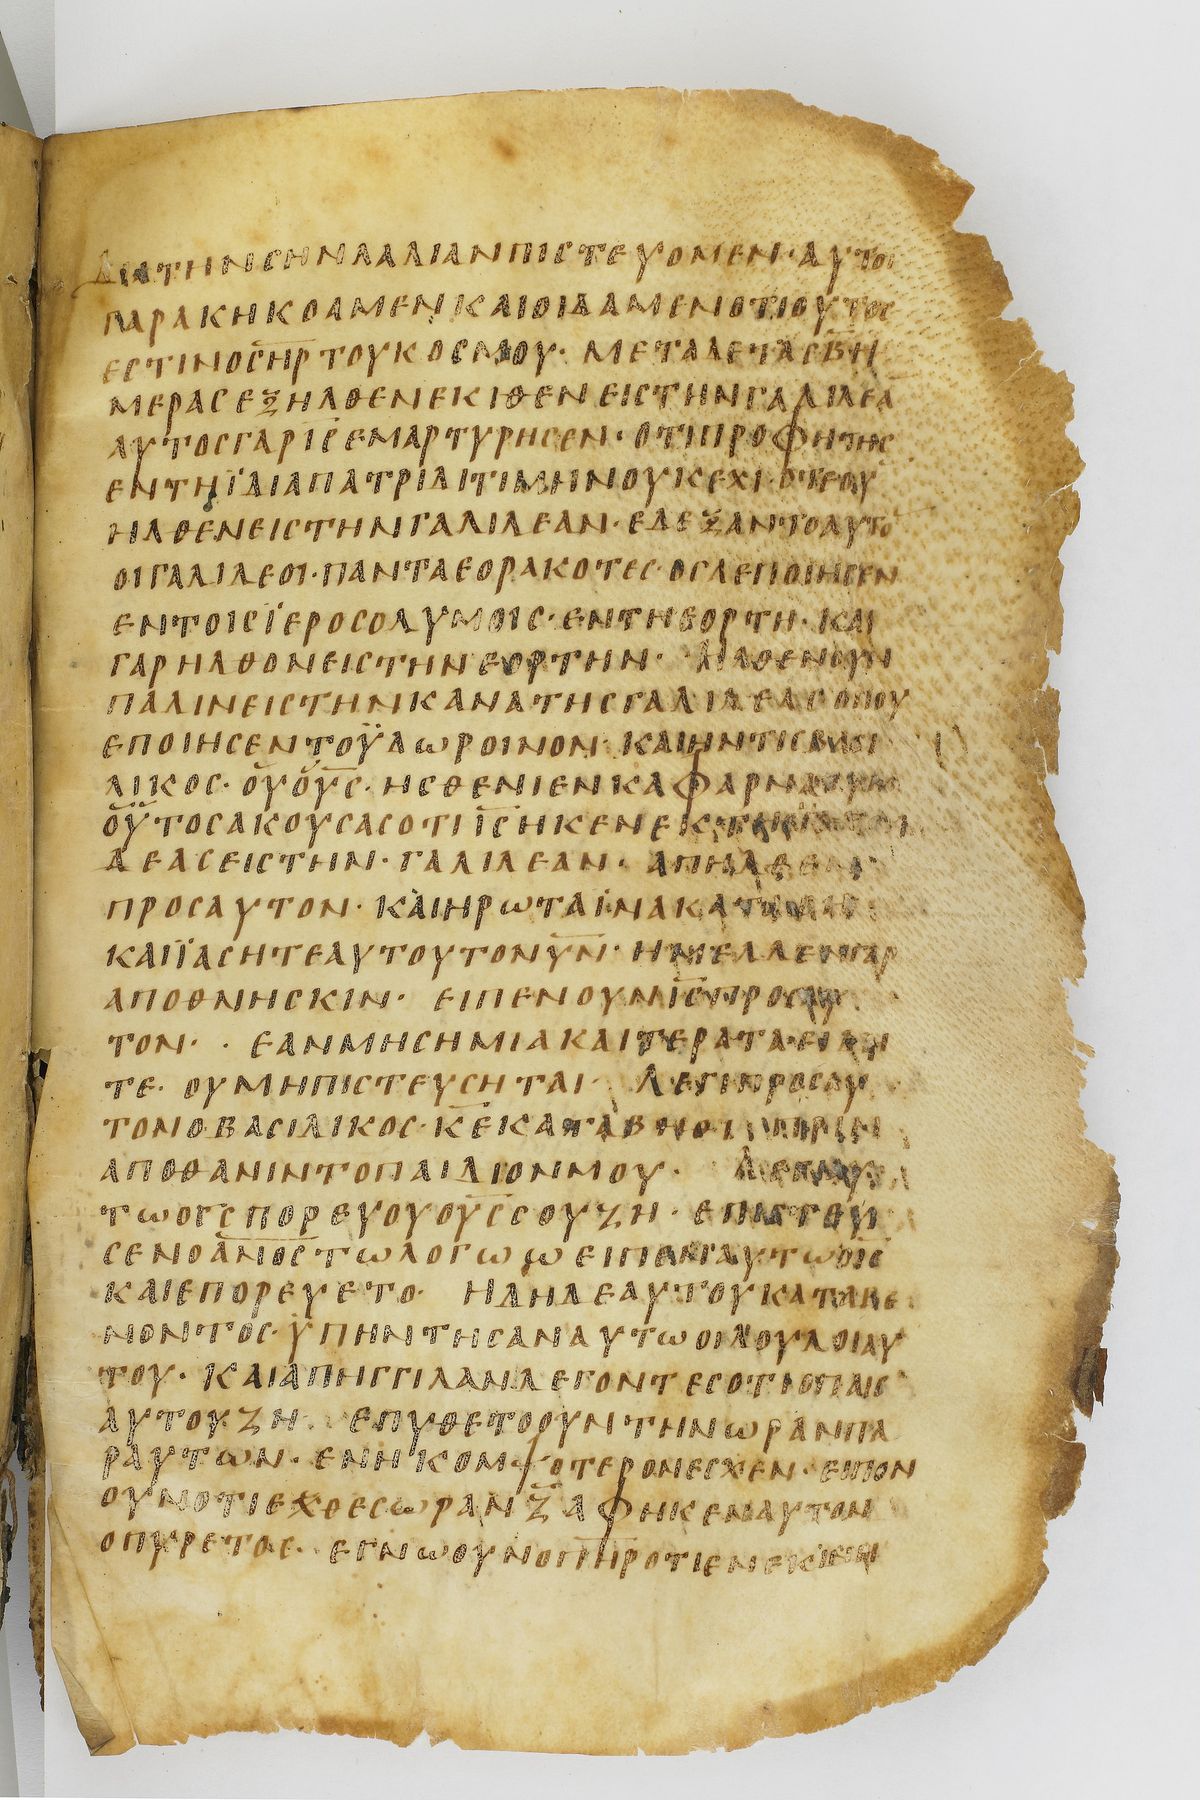 ΔΙΑΤΗΝϹΗΝΛΑΛΙΑΝΠΙϹΤΕΥΟΜΕΝ·ΑΥΤΟΙ
ΓΑΡΑΚΗΚΟΑΜΕΝΚΑΙΟΙΔΑΜΕΝΟΤΙΟΥΤΟϹ
ΕϹΤΙΝΟϹ̅Η̅Ρ̅ΤΟΥΚΟϹΜΟΥ· ΜΕΤΑΔΕΤΑϹΒ̅Η
ΜΕΡΑϹΕΞΗΛΘΕΝΕΚΙΘΕΝΕΙϹΤΗΝΓΑΛΙΛΕΑ̅
ΑΥΤΟϹΓΑΡΙ̅Ϲ̅ΕΜΑΡΤΥΡΗϹΕΝ·ΟΤΙΠΡΟΦΗΤΗϹ
ΕΝΤΗΪΔΙΑΠΑΤΡΙΔΙΤΙΜΗΝΟΥΚΕΧΙ·ΟΤΕΟΥ̅
ΗΛΘΕΝΕΙϹΤΗΝΓΑΛΙΛΕΑΝ·ΕΔΕΞΑΝΤΟΑΥΤΟ̅
ΟΙΓΑΛΙΛΕΟΙ·ΠΑΝΤΑΕΟΡΑΚΟΤΕϹ·ΟϹΑΕΠΟΙΗϹΕΝ
ΕΝΤΟΙϹΪΕΡΟϹΟΛΥΜΟΙϹ·ΕΝΤΗΕΟΡΤΗ·ΚΑΙ
ΓΑΡΗΛΘΟΝΕΙϹΤΗΝΕΟΡΤΗΝ· ΗΛΘΕΝΟΥΝ
ΠΑΛΙΝΕΙϹΤΗΝΚΑΝΑΤΗϹΓΑΛΙΛΕΑϹΟΠΟΥ
ΕΠΟΙΗϹΕΝΤΟΫΔΩΡΟΙΝΟΝ·ΚΑΙΗΝΤΙϹΒΑϹΙ
ΛΙΚΟϹ·ΟΥΟΥ̅Ϲ̅·ΗϹΘΕΝΙΕΝΚΑΦΑΡΝΑΟΥΜ
ΟΥΤΟϹΑΚΟΥϹΑϹΟΤΙΙ̅Ϲ̅ΗΚΕΝΕΚΤΗϹΪΟΥ
ΔΕΑϹΕΙϹΤΗΝ·ΓΑΛΙΛΕΑΝ· ΑΠΗΛΘΕΝ
ΠΡΟϹΑΥΤΟΝ·ΚΑΙΗΡΩΤΑΪΝΑΚΑΤΑΒΗ
ΚΑΙΪΑϹΗΤΕΑΥΤΟΥΤΟΝΥ̅Ν̅·ΗΜΕΛΛΕΝΓΑΡ
ΑΠΟΘΝΗϹΚΙΝ· ΕΙΠΕΝΟΥΝΙ̅Ϲ̅ΠΡΟϹΑΥ
ΤΟΝ· ·ΕΑΝΜΗϹΗΜΙΑΚΑΙΤΕΡΑΤΑΕΙΔΗ
ΤΕ·ΟΥΜΗΠΙϹΤΕΥϹΗΤΑΙ· ΛΕΓΙΠΡΟϹΑΥ
ΤΟΝΟΒΑϹΙΛΙΚΟϹ·Κ̅Ε̅ΚΑΤΑΒΗΘΙ ΠΡΙΝ
ΑΠΟΘΑΝΙΝΤΟΠΑΙΔΙΟΝΜΟΥ· ΛΕΓΙΑΥ
ΤΩΟΙ̅Ϲ̅ΠΟΡΕΥΟΥΟΥ̅Ϲ̅ϹΟΥΖΗ·ΕΠΙϹΤΕΥ
ϹΕΝΟΑ̅Ν̅Ο̅Ϲ̅ΤΩΛΟΓΩΩΕΙΠΕΝΑΥΤΩΟΙ̅Ϲ̅
ΚΑΙΕΠΟΡΕΥΕΤΟ· ΗΔΗΔΕΑΥΤΟΥΚΑΤΑΒΕ
ΝΟΝΤΟϹ·ΫΠΗΝΤΗϹΑΝΑΥΤΩΟΙΔΟΥΛΟΙΑΥ
ΤΟΥ·ΚΑΙΑΠΗΓΓΙΛΑΝΛΕΓΟΝΤΕϹΟΤΙΟΠΑΙϹ
ΑΥΤΟΥΖΗ· ΕΠΥΘΕΤΟΟΥΝΤΗΝΩΡΑΝΠΑ
ΡΑΥΤΩΝ·ΕΝΗΚΟΜΨΟΤΕΡΟΝΕϹΧΕΝ·ΕΙΠΟΝ
ΟΥΝΟΤΙΕΧΘΕϹΩΡΑΝΖ̅ΑΦΗΚΕΝΑΥΤΟΝ
ΟΠΥΡΕΤΟϹ· ΕΓΝΩΟΥΝΟΠ̅Η̅Ρ̅ΟΤΙΕΝΕΚΙΝΗ